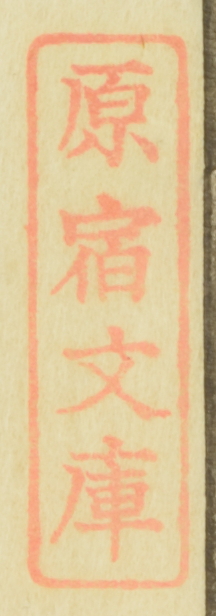 原宿文庫